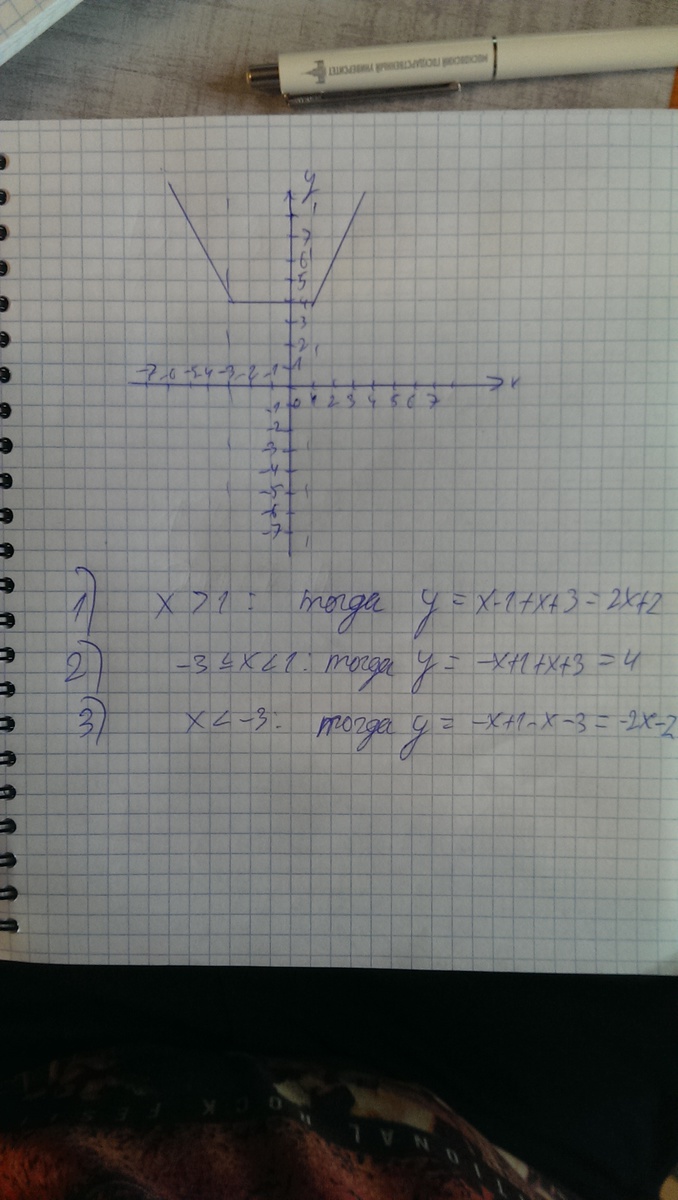 МОСКОВСКИЙ ГОСУДАРСТВЕННЫЙ УНИВЕРСИТЕТ
y
7
6
5
4
3
2
1
-7 -6 -5 -4 -3 -2 -1
x
0 1 2 3 4 5 6 7
-1
-2
-3
-4
-5
-6
-7
1) x > 1: тогда y = x-1+x+3 = 2x+2
2) -3 ≤ x < 1: тогда y = -x+1+x+3 = 4
3) x < -3: тогда y = -x+1-x-3 = -2x-2
IONAL ROCK FES